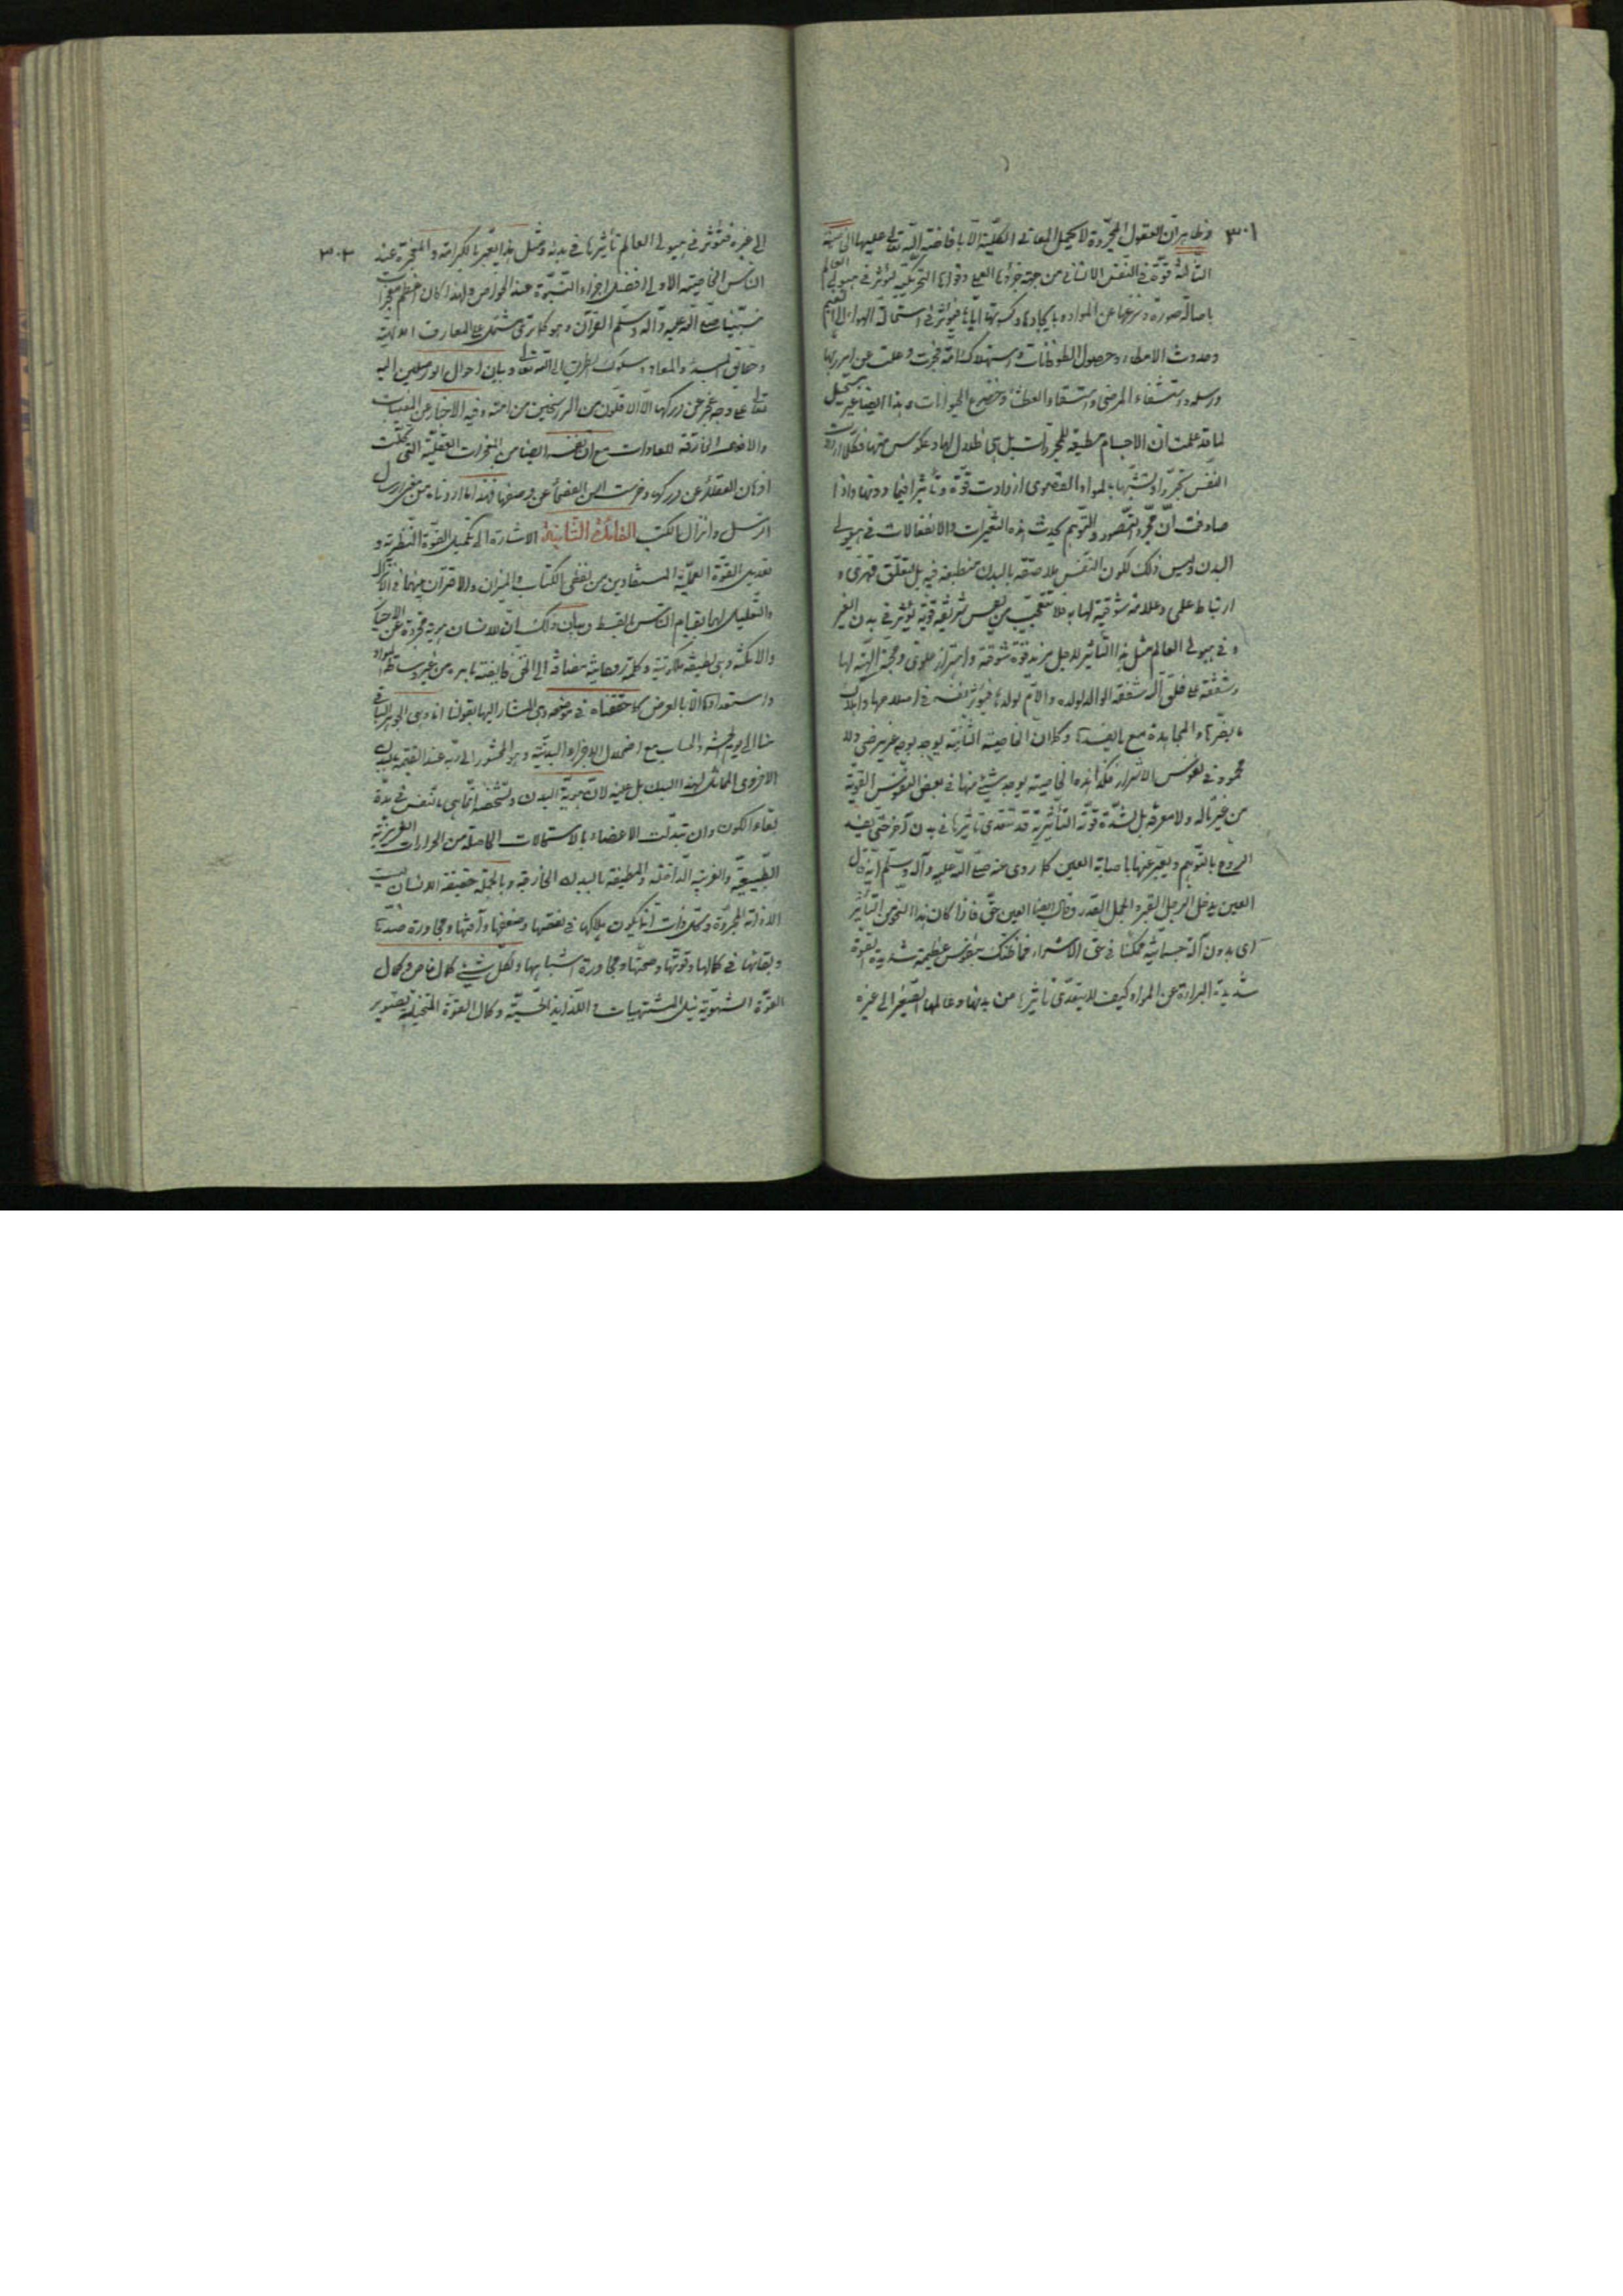 ٣٠١
وظاهر ان العقول المجردة لا يحيل المعاني الكلية الا بافاضة الله تعالى عليها الخاصة
الثالثة قوة في النفس الانساني من جهة جزؤها العملي وقواها التحريكية ليؤثر في هيولى العالم
بازالة صورة ونزعها عن المواد وبايجادها وكسوتها اياها فيؤثر في استحالة الهواء الى الغيم
وحدوث الامطار وحصول الطوفانات واستهلاك امة فجرت وعتت عن امر ربها
ورسله واستشفاء المرضى واستسقاء العطشى وخضوع الحيوانات وهذا ايضا غير مستحيل
لما قد علمت ان الاجسام مطيعة للمجردات بل هي ظلال لها وعكوس منها فكلما ازدادت
النفس تجردا وتشبها بالمبادي القصوى ازدادت قوة وتأثيرا فيما دونها واذا
صادفت ان مجرد التصور والتوهم يحدث هذه التغيرات والانفعالات في هيولى
البدن وليس ذلك لكون النفس ملاصقة بالبدن منطبعة فيه بل لتعلق قهري و
ارتباط علمي وعلاقة شوقية لها به فلا تتعجب من نفس شريفة قوية يؤثر في بدن الغير
وفي هيولى العالم مثل هذا التأثير لاجل مزيد قوة شوقية واهتزاز علوي ومحبة الهية لها
وشفقة على خلق الله شفقة الوالد لولده والام لولدها فيؤثر نفسه في اصلاحها واهلاك
ما يضرها والمجاهدة مع ما يفسدها وكما ان الخاصية الثانية يوجد بوجه غير مرضي ولا
محمود في نفوس الاشرار فكذا هذه الخاصية يوجد شيء منها في بعض النفوس القوية
من غير تأله ولا معرفة بل لشدة قوته التأثيرية قد تتعدى تأثيرها في بدن آخر حتى يفسد
الروح بالتوهم ويعبر عنها باصابة العين كما روي عنه صلى الله عليه وآله وسلم انه قال
العين يدخل الرجل القبر والجمل القدر وقال ايضا العين حق فاذا كان هذا النحو من التأثير
اي بدون آلة جسمانية ممكنا في حق الاشرار فما ظنك بنفوس عظيمة شديدة القوة
شديدة البراءة عن المواد كيف لا يتعدى تأثيرها من بدنها وعالمها الصغير الى غيره
٣٠٢
الى غيره فتؤثر في هيولى العالم تأثيرها في بدنه ومثل هذا يعبر بالكرامة والمعجزة عند
الناس الخاصية الاولى افضل اجزاء النبوة عند الخواص ولهذا كان اعظم معجزات
نبينا صلى الله عليه وآله وسلم القرآن وهو كما ترى مشتمل على المعارف الالهية
وحقايق المبدأ والمعاد وسلوك الطريق الى الله تعالى وبيان احوال الواصلين اليه
تعالى على وجه عجز عن دركها الا الاقلون من الراسخين من امته وفيه الاخبار عن المغيبات
والافعال الخارقة للعادات مع انه نفسه ايضا من المعجزات العقلية التي كلت
اذهان العقلاء عن دركه وخرست السن الفصحاء عن وصفها فهذا ما اردناه من معنى ارسال
الرسل وانزال الكتب الفائدة الثانية الاشارة الى تكميل القوة النظرية و
تعديل القوة العملية المستفادين من لفظي الكتاب والميزان والاقتران بينهما في الانزال
والتعليل لهما بقيام الناس بالقسط وبيان ذلك ان للانسان هوية مجردة عن الاحياز
والامكنة وهي لطيفة ملكوتية وكلمة روحانية مضافة الى الحق فايضة بامره من غير وساطة المواد
واستعداداتها الا بالعرض كما حققناه في موضعه وهي المشار اليها بقولنا انا وهي الجوهر الباقي
منا الى يوم الحشر والحساب مع اضمحلال الاجزاء البدنية وهو المحشور الى ربه عند القيمة بالبدن
الاخروي المماثل لهذا البدن بل عينه لان هوية البدن وتشخصه انما هي بالنفس في مدة
بقاء الكون وان تبدلت الاعضاء بالاستحالات الحاصلة من الحرارات الغريزية
الطبيعية والغريبة الداخلة والمطيفة بالبدن الخارقة وبالجملة حقيقة الانسان ليست
الا ذاته المجردة وكل ذات انما يكون هلاكها في نقصها وضعفها وآفتها ومجاورة ضدها
وبقائها في كمالها وقوتها وصحتها ومجاورة اشباهها ولكل شيء كمال خاص وكمال
القوة الشهوية نيل المشتهيات واللذايذ الحسية وكمال القوة المتخيلة تصوير